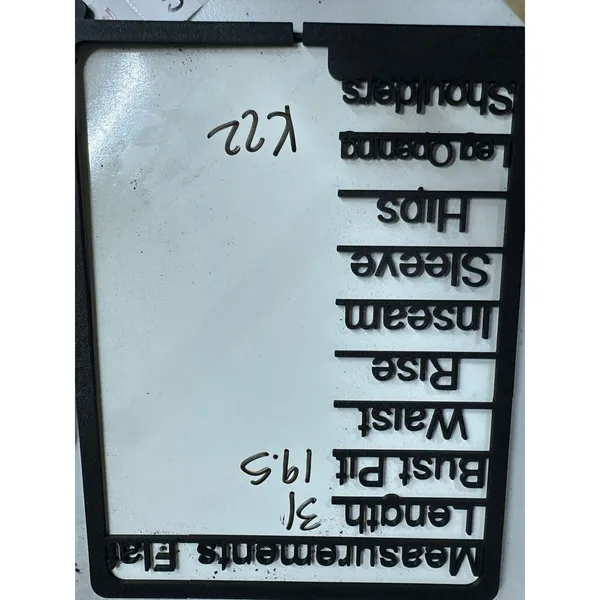 Measurements Flat
Length 31
Bust Pit 19.5
Waist
Rise
Inseam
Sleeve
Hips
Leg Opening K22
Shoulders